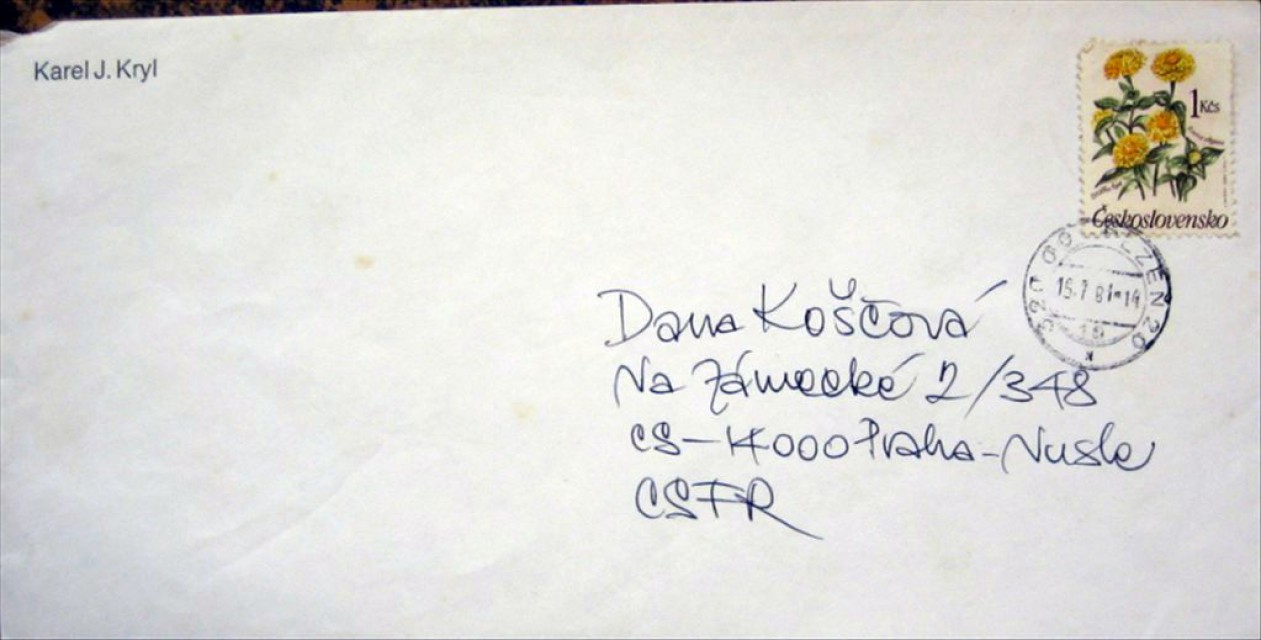 Karel J. Kryl
1 Kčs
Československo
PLZEŇ 20
Dana Koščová
Na Zámecké 2/348
CS-14000 Praha-Nusle
CSFR